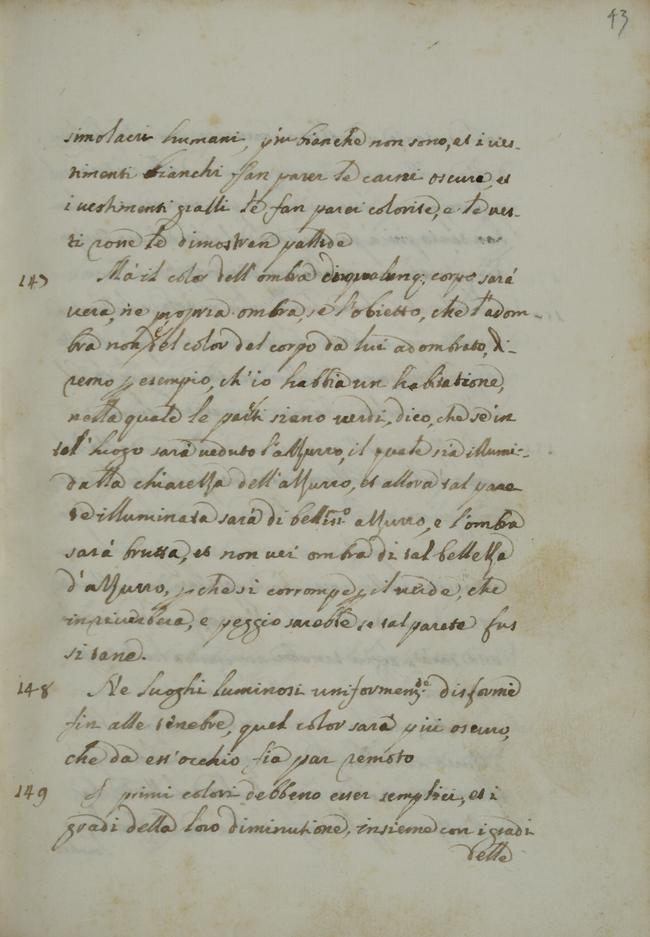 43
simolacri humani, più bianche non sono, et i ves-
timenti bianchi fan parer le carni oscure, et
i vestimenti gialli le fan parer colorite, e le ves-
ti rosse le dimostran pallide
147 Mà il color dell'ombra di qualunq; corpo sarà
vera, ne propria ombra, se l'obietto, che l'adom-
bra non è del color del corpo da lui adombrato, di-
remo p esempio, ch'io habbia un habitatione,
nella quale le pariti siano verdi, dico, che se in
tal' luogo sarà veduto l'azzurro, il quale sia illumi-
dalla chiarezza dell'azzurro, et allora tal pare
te illuminata sarà di bellis.o azzurro, e l'ombra
sarà brutta, et non ver' ombra di tal bellezza
d'azzurro, p che si corrompe p il verde, che
in riverbera, e peggio sarebbe se tal parete fus
si tane.
148 Ne luoghi luminosi uniformem.te disformi
fin alle tenebre, quel color sarà più oscuro,
che da ess'occhio fia più remoto
149 I primi colori debbeno esser semplici, et i
gradi della loro diminutione, insieme con i gradi
delle